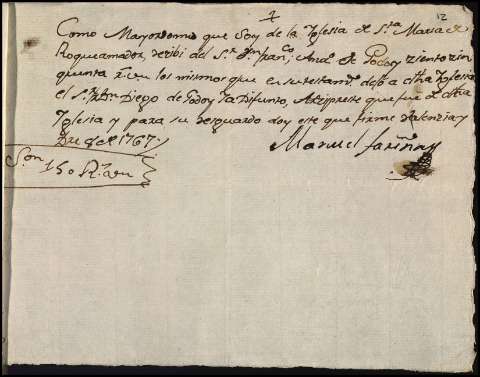 1 12
Como Mayordomo que Soy de la Yglesia de S.ta Maria de
Roqueamador, rezibi del S.r D.n Fran.co; And.s de Godoy ziento zin
quenta r.s vn los mismos que en su testam.to dejo a dha Yglesia
el S.r D.n Diego de Godoy ya Difunto, Arzipreste que fue de dha
Yglesia y para su resguardo doy este que firme Valenzia y
de 1767
Manuel farinas
Son 150 R.s vn